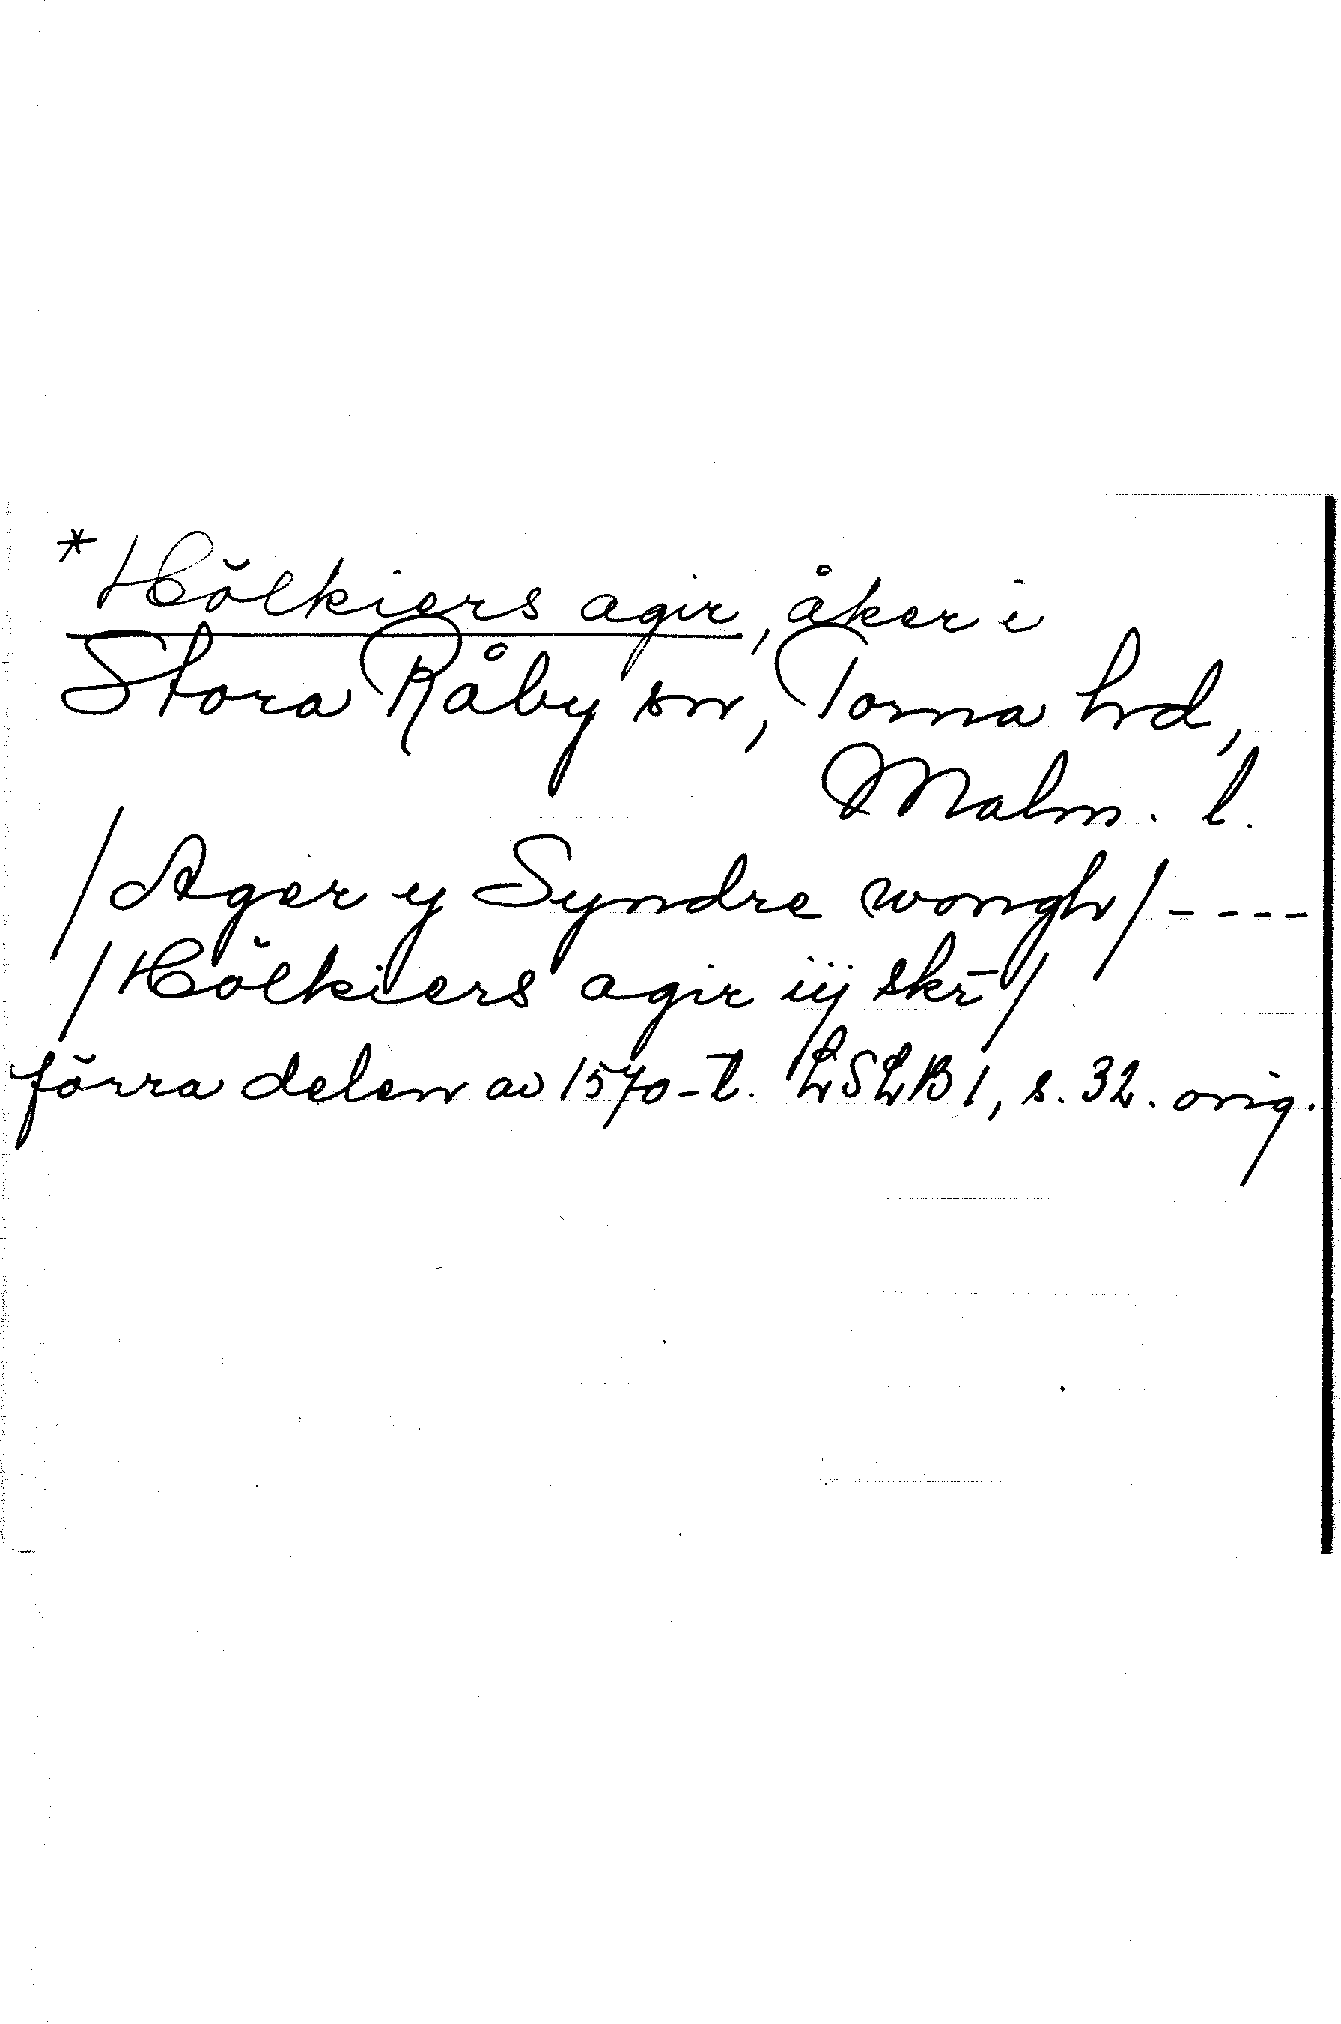 *Hölkiers agir, åker i
Stora Råby sn, Torna hd,
Malm. l.
/Ager y Syndre wongh/----
/Hölkiers agir iij skr̄/
förra delen av 1570-t. LSLB 1, s. 32. orig.